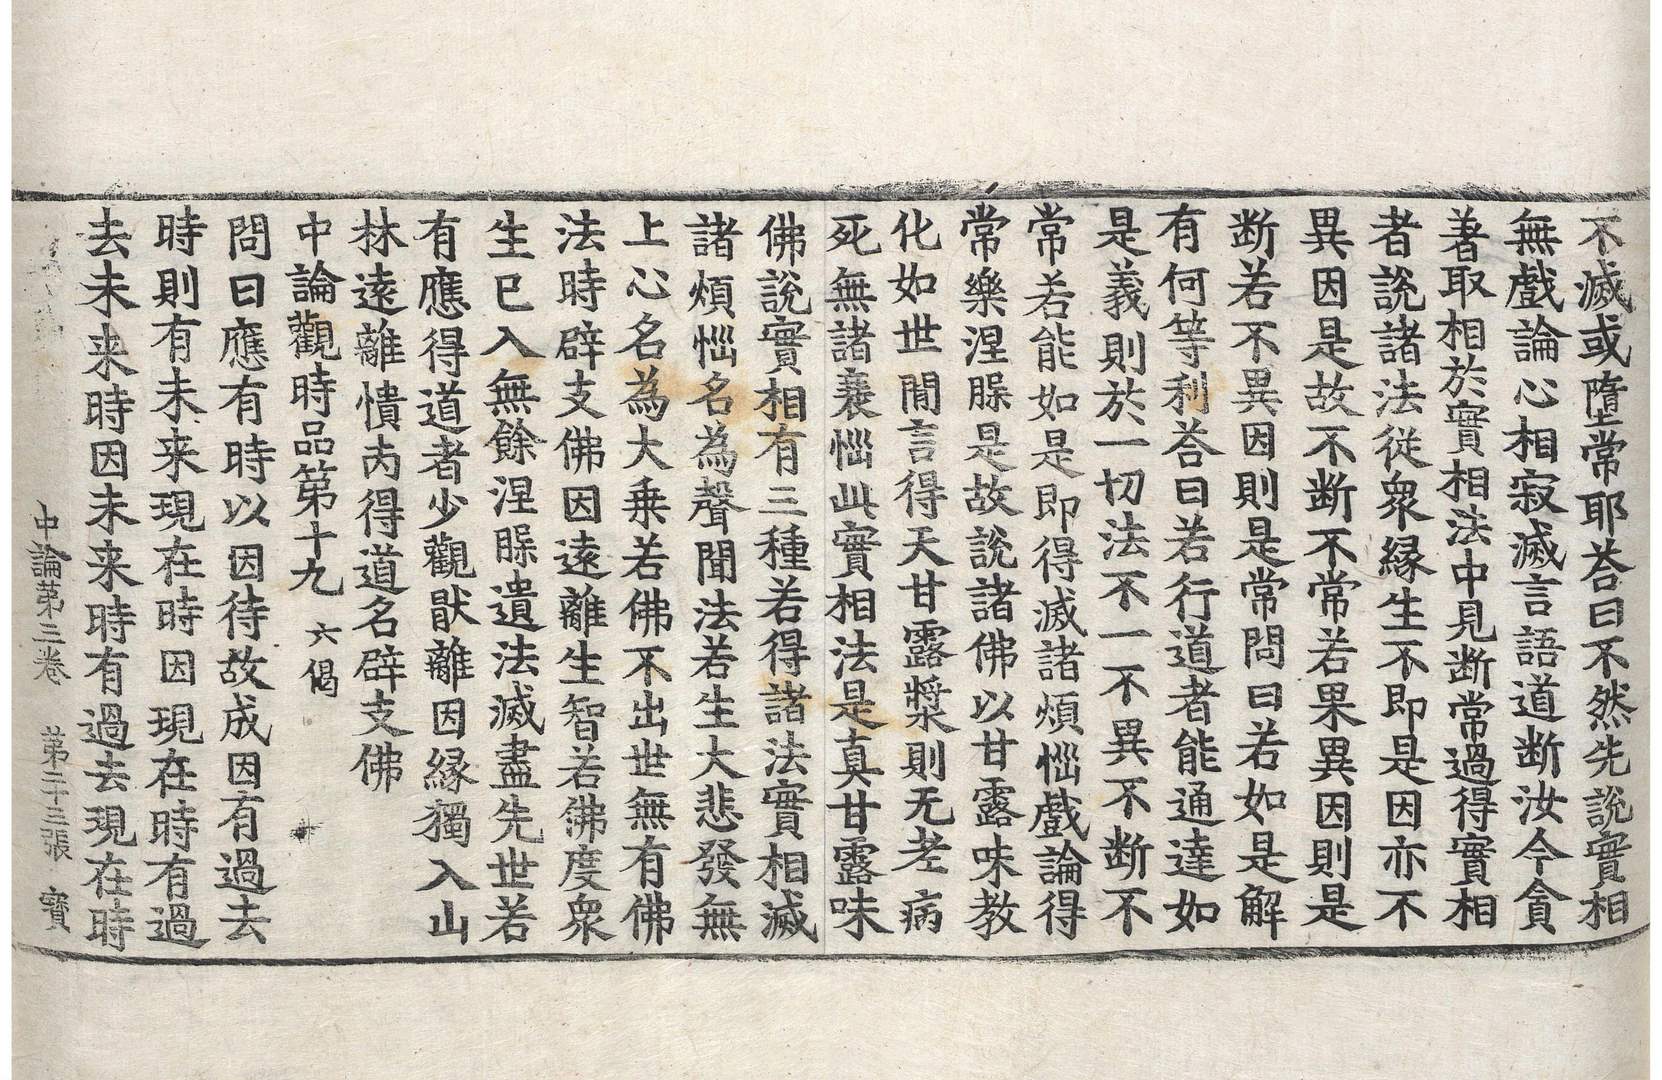 不滅或墮常耶荅曰不然先說實相
無戲論心相寂滅言語道断汝今貪
著取相於實相法中見断常過得實相
者說諸法從衆縁生不即是因亦不
異因是故不断不常若果異因則是
断若不異因則是常問曰若如是解
有何等利荅曰若行道者能通達如
是義則於一切法不一不異不断不
常若能如是即得滅諸煩惱戲論得
常樂涅槃是故說諸佛以甘露味教
化如世間言得天甘露漿則无老病
死無諸衰惱此實相法是真甘露味
佛說實相有三種若得諸法實相滅
諸煩惱名為聲聞法若生大悲發無
上心名為大乗若佛不出世無有佛
法時辟支佛因遠離生智若佛度衆
生已入無餘涅槃遺法滅盡先世若
有應得道者少觀猒離因縁獨入山
林遠離憒丙得道名辟支佛
中論觀時品第十九 六偈
問曰應有時以因待故成因有過去
時則有未来現在時因現在時有過
去未来時因未来時有過去現在時
中論第三卷 第二十三張 寳